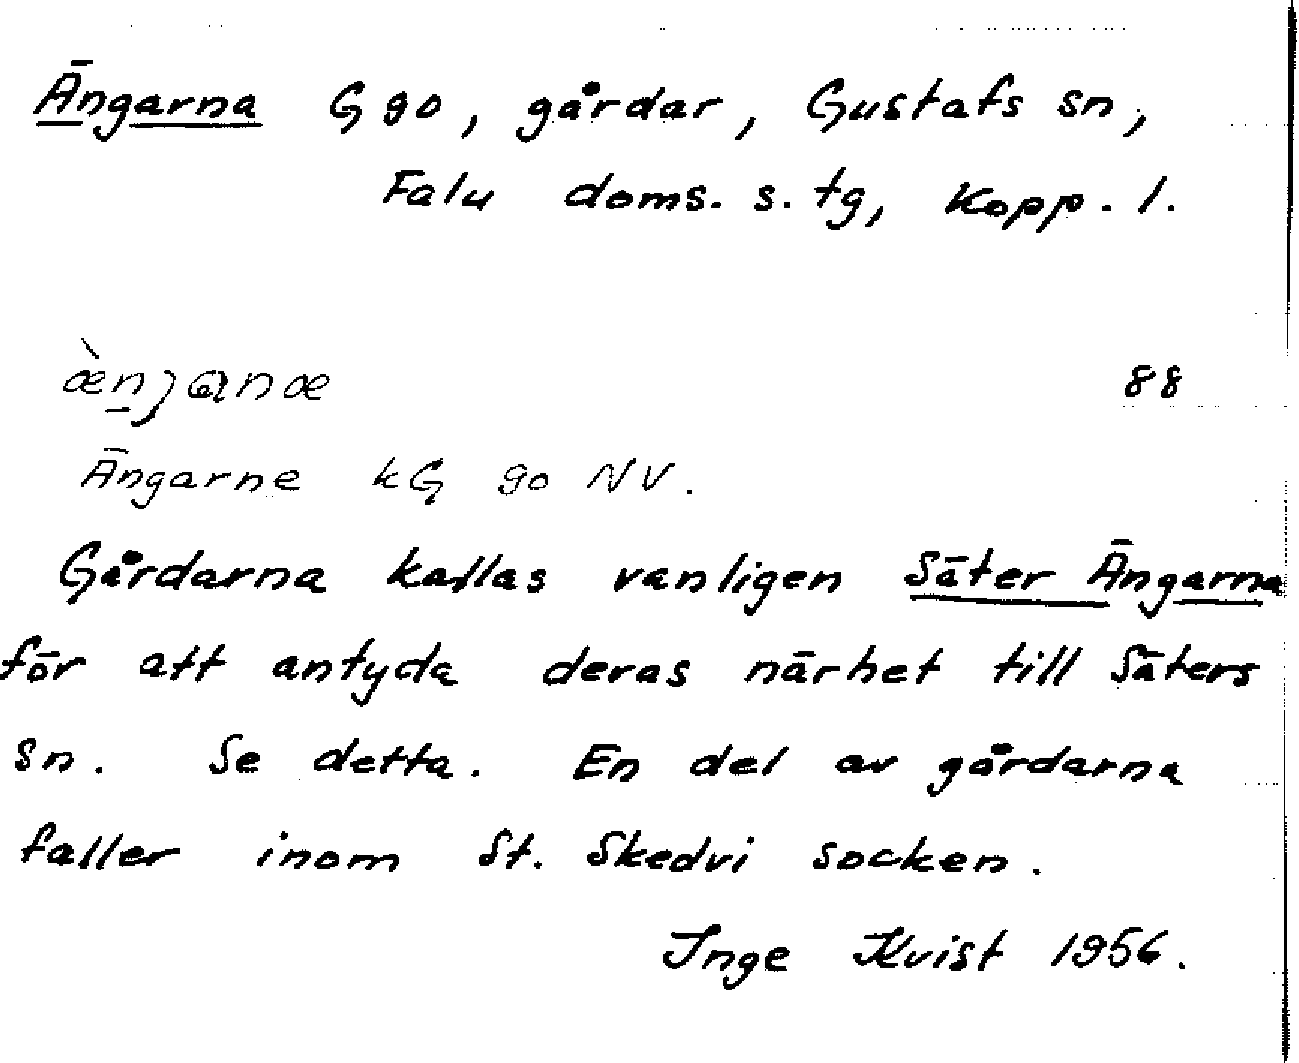 Ängarna G 90, gårdar, Gustafs sn,
Falu doms. s. tg, Kopp. l.
88
Ängarne kG 90 NV.
Gårdarna kallas vanligen Säter Ängarna
för att antyda deras närhet till Säters
sn. Se detta. En del av gårdarna
faller inom St. Skedvi socken.
Inge Kvist 1956.